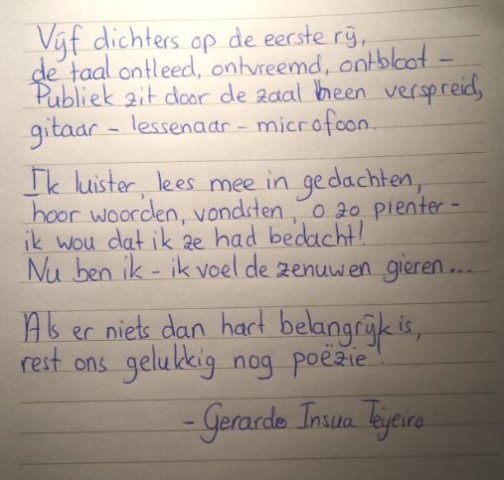 Vijf dichters op de eerste rij,
de taal ontleed, ontvreemd, ontbloot –
Publiek zit door de zaal heen verspreid,
gitaar – lessenaar – microfoon.
Ik luister, lees mee in gedachten,
hoor woorden, vondsten, o zo pienter –
ik wou dat ik ze had bedacht!
Nu ben ik – ik voel de zenuwen gieren...
Als er niets dan hart belangrijk is,
rest ons gelukkig nog poëzie!
– Gerardo Insua Teijeiro